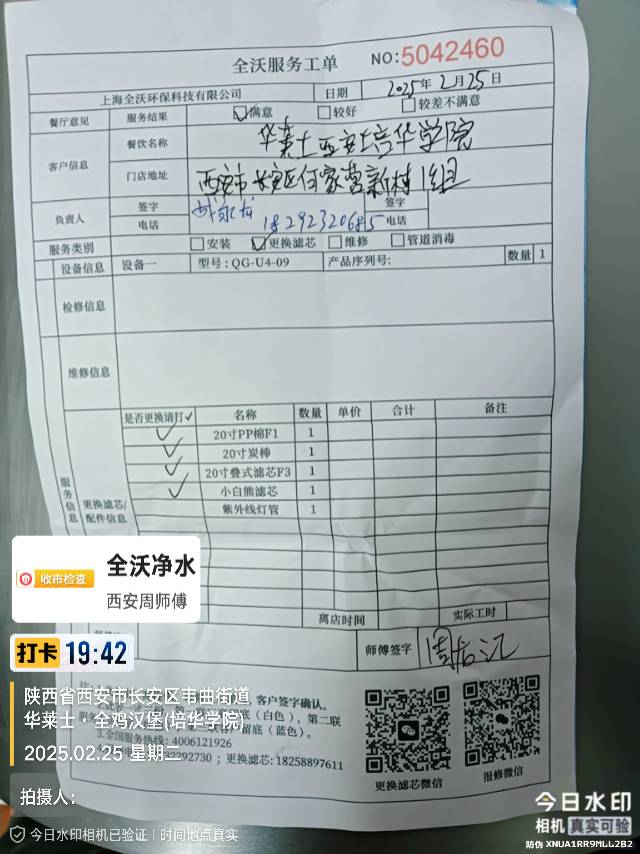 全沃服务工单 NO:5042460
上海全沃环保科技有限公司 日期 2025年2月25日
餐厅意见 服务结果 ☑满意 □较好 □较差不满意
客户信息 餐饮名称 华莱士西安培华学院
门店地址 西安市长安区何家营新村1组
负责人 签字 签字
电话 18292320685 电话
服务类别 □安装 ☑更换滤芯 □维修 □管道消毒
设备信息 设备一 型号:QG-U4-09 产品序列号: 数量 1
检修信息
维修信息
服务信息 更换滤芯/配件信息
是否更换请打✓ 名称 数量 单价 合计 备注
✓ 20寸PP棉F1 1
✓ 20寸炭棒 1
✓ 20寸叠式滤芯F3 1
✓ 小白熊滤芯 1
紫外线灯管 1
离店时间 实际工时
师傅签字
客户签字确认。
底(白色),第二联
留底(蓝色)。
3.全国服务热线:4006121926
2292730;更换滤芯:18258897611
更换滤芯微信 报修微信
收市检查 全沃净水
西安周师傅
打卡 19:42
陕西省西安市长安区韦曲街道
华莱士·全鸡汉堡(培华学院)
2025.02.25 星期二
拍摄人:
今日水印相机已验证 | 时间地点真实
今日水印
相机 真实可验
防伪 XNUA1RR9MLL2B2